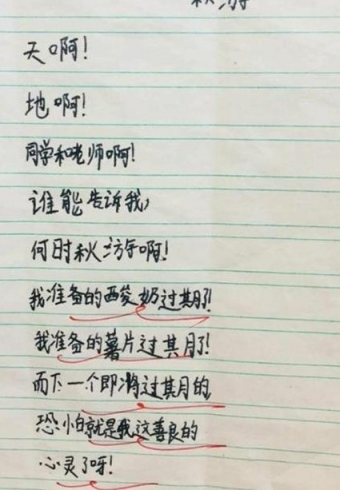 秋游
天啊!
地啊!
同学和老师啊!
谁能告诉我,
何时秋游啊!
我准备的酸奶过期了!
我准备的薯片过期了!
而下一个即将过期的,
恐怕就是我这善良的
心灵了呀!